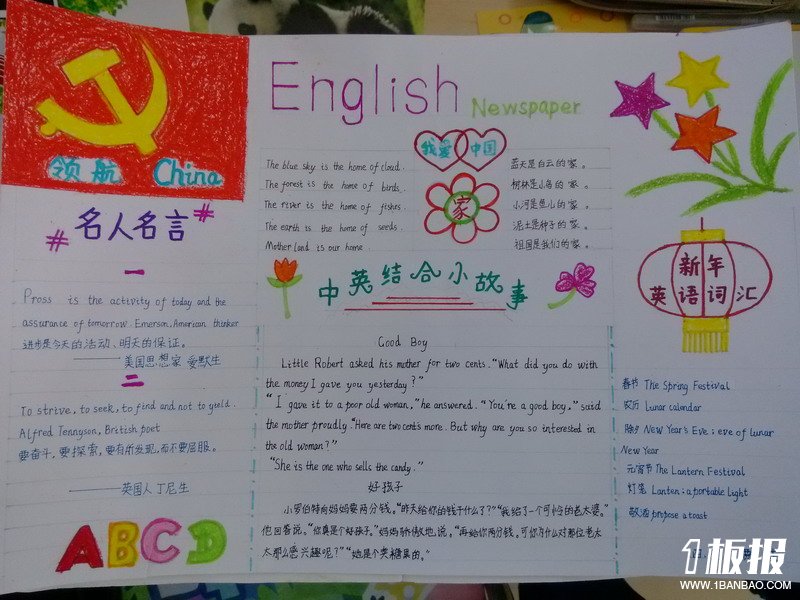 领航 China
English Newspaper
我爱 中国
The blue sky is the home of cloud.
The forest is the home of birds.
The river is the home of fishes.
The earth is the home of seeds.
Mother land is our home.
家
蓝天是白云的家。
树林是小鸟的家。
小河是鱼儿的家。
泥土是种子的家。
祖国是我们的家。
# 名人名言 #
一
Pross is the activity of today and the
assurance of tomorrow. Emerson, American thinker
进步是今天的活动、明天的保证。
———美国思想家 爱默生
二
To strive, to seek, to find and not to yield.
Alfred Tennyson, British poet
要奋斗,要探索,要有所发现,而不要屈服。
———英国人丁尼生
ABCD
中英结合小故事
Good Boy
Little Robert asked his mother for two cents. "What did you do with
the money I gave you yesterday?"
"I gave it to a poor old woman," he answered. "You're a good boy," said
the mother proudly. "Here are two cents more. But why are you so interested in
the old woman?"
"She is the one who sells the candy."
好孩子
小罗伯特向妈妈要两分钱。"昨天给你的钱干什么了?" "我给了一个可怜的老太婆。"
他回答说。"你真是个好孩子。"妈妈骄傲地说。"再给你两分钱。可你为什么对那位老太
太那么感兴趣呢?" "她是个卖糖果的。"
新年
英语词汇
春节 The Spring Festival
农历 Lunar calendar
除夕 New Year's Eve; eve of lunar
New Year
元宵节 The Lantern Festival
灯笼 Lanten: a portable light
敬酒 propose a toast
1板报
WWW.1BANBAO.COM